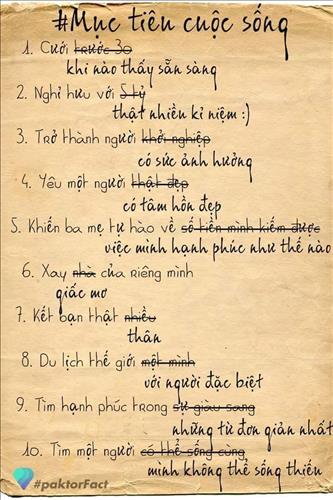 #Mục tiêu cuộc sống
1. Cưới trước 30
khi nào thấy sẵn sàng
2. Nghỉ hưu với 5 tỷ
thật nhiều kỉ niệm :)
3. Trở thành người khởi nghiệp
có sức ảnh hưởng
4. Yêu một người thật đẹp
có tâm hồn đẹp
5. Khiến ba mẹ tự hào về số tiền mình kiếm được
việc mình hạnh phúc như thế nào
6. Xay nhà của riêng mình
giấc mơ
7. Kết bạn thật nhiều
thân
8. Du lịch thế giới một mình
với người đặc biệt
9. Tìm hạnh phúc trong sự giàu sang
những từ đơn giản nhất
10. Tìm một người có thể sống cùng
mình không thể sống thiếu
#paktorFact